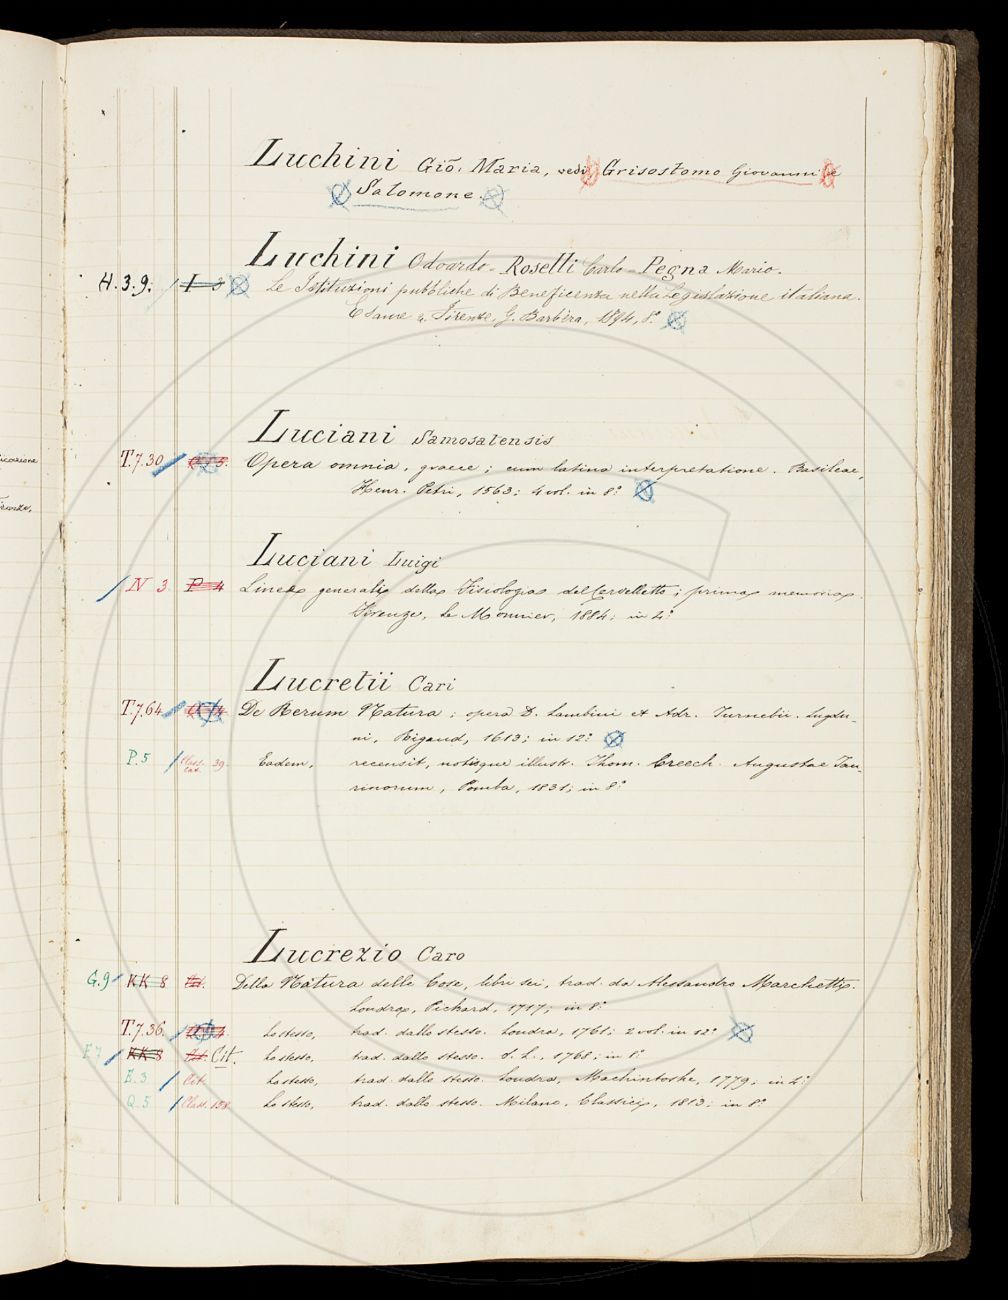 icazione
Firenze,
Luchini Giō. Maria, vedi Grisostomo Giovanni e
Salomone.
Luchini Odoardo - Roselli Carlo - Pegna Mario.
H. 3. 9. I 3 Le Istituzioni pubbliche di Beneficenza nella Legislazione italiana.
Firenze, G. Barbèra, 1894, 8.°
Luciani Samosatensis
T.7.30 Opera omnia, graece; cum latina interpretatione. Basileae,
Henr. Petri, 1563; 4 vol. in 8.°
Luciani Luigi
IV 3 P 4 Linee generali della Fisiologia del Cervelletto; prima memoria.
Firenze, Le Monnier, 1884; in 4.°
Lucretii Cari
T.7.64 De Rerum Natura; opera D. Lambini et Adr. Turnebii. Lugdu-
ni, Rigaud, 1613; in 12.°
P.5 Class. Lat. 39. Eadem, recensit, notisque illustr. Thom. Creech. Augustae Tau-
rinorum, Pomba, 1831; in 8.°
Lucrezio Caro
G.9 KK 8 Cit. Della Natura delle Cose, libri sei, trad. da Alessandro Marchetti.
Londra, Pickard, 1717; in 8.°
T.7.36. Lo stesso, trad. dallo stesso. Londra, 1761; 2 vol. in 12.°
E 7 KK 8 Cit. Cit. Lo stesso, trad. dallo stesso. S. L., 1768; in 8.°
E.3 Cit. Lo stesso, trad. dallo stesso. Londra, Machintoshe, 1779; in 4.°
Q.5 Class. 158 Lo stesso, trad. dallo stesso. Milano, Classici, 1813; in 8.°